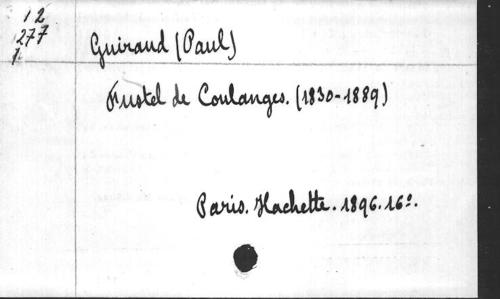 12
277
1.
Guiraud (Paul)
Fustel de Coulanges. (1830-1889)
Paris. Hachette. 1896. 16º.